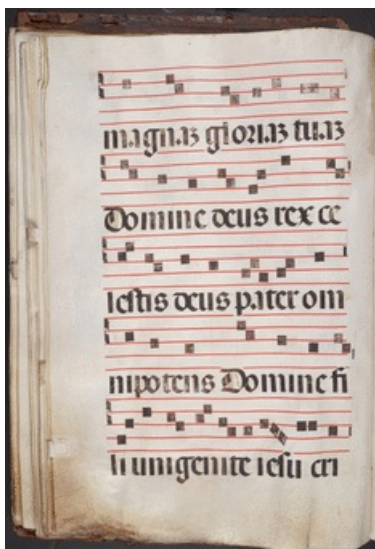 magnaʒ gloriaʒ tuaʒ
Domine deus rex ce
lestis deus pater om
nipotens Domine fi
li unigenite iesu cri